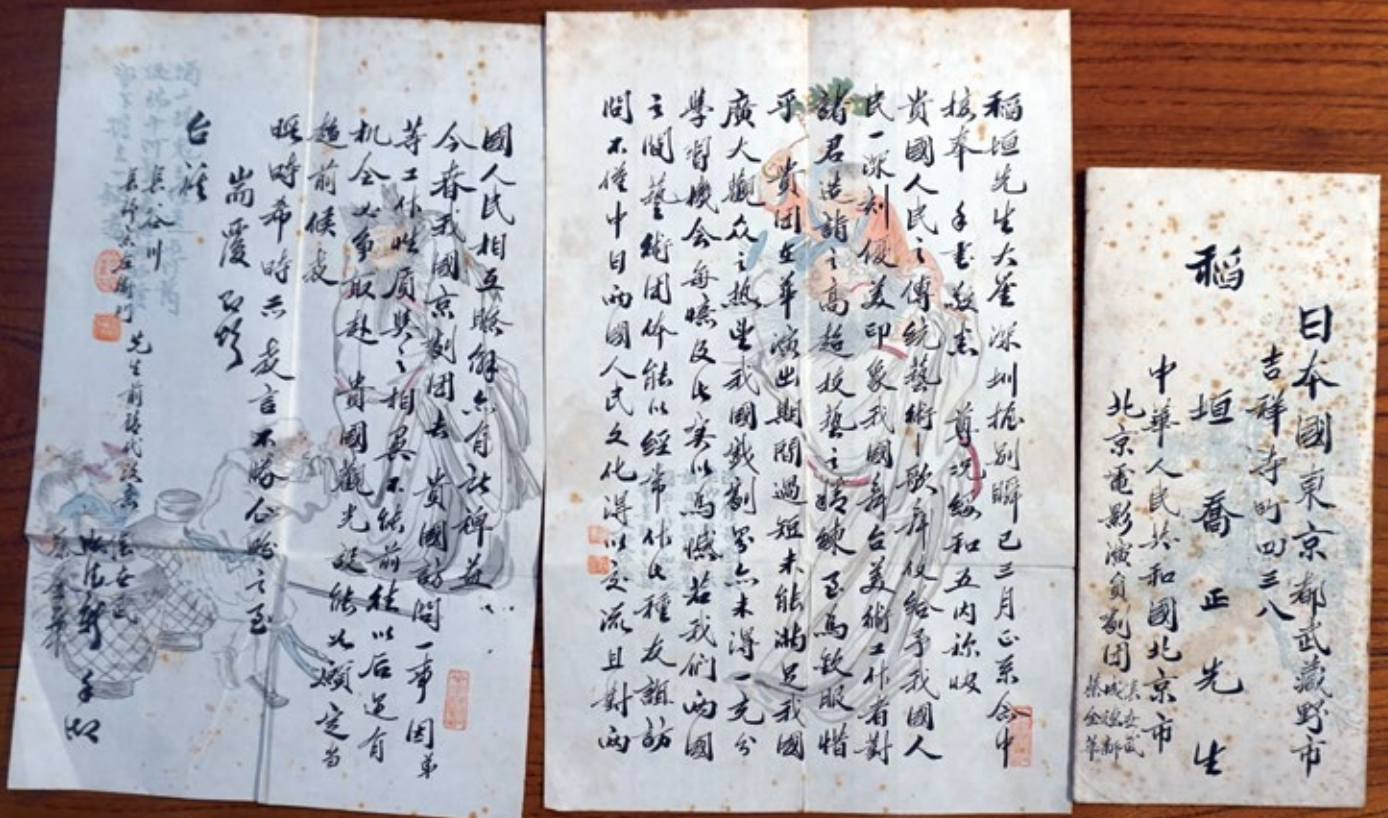 日本國東京都武藏野市
吉祥寺町四三八
稻垣喬正先生
中華人民共和國北京市
北京電影演員劇团
稻垣先生大鉴深圳握别瞬已三月正系念中
接奉 手书敬悉 尊况绥和五内称
貴國人民之傳統藝術—歌舞伎給予我國人
民一深刻優美印象我國舞台美術工作者對
諸君造詣之高超技藝之精練至爲欽服惜
乎 貴团在華演出期間過短未能滿足我國
廣大觀众之热望我國戲劇界亦未得一充分
學習機会每憶及此寔以爲憾若我们两國
之間藝術团体能以經常作此種友誼訪
問不僅中日两國人民文化得以交流且對两
國人民相互瞭解亦有所裨益
今春我國京劇团去 貴國訪問一事因弟
等工作性質與之相異不能前往以后遇有
机会必争取赴 貴國觀光設能如願定当
趋前候教
暇時希時示教言不勝企盼之至
耑覆 即頌
台祺
長谷川
左衛門 先生前請代致意